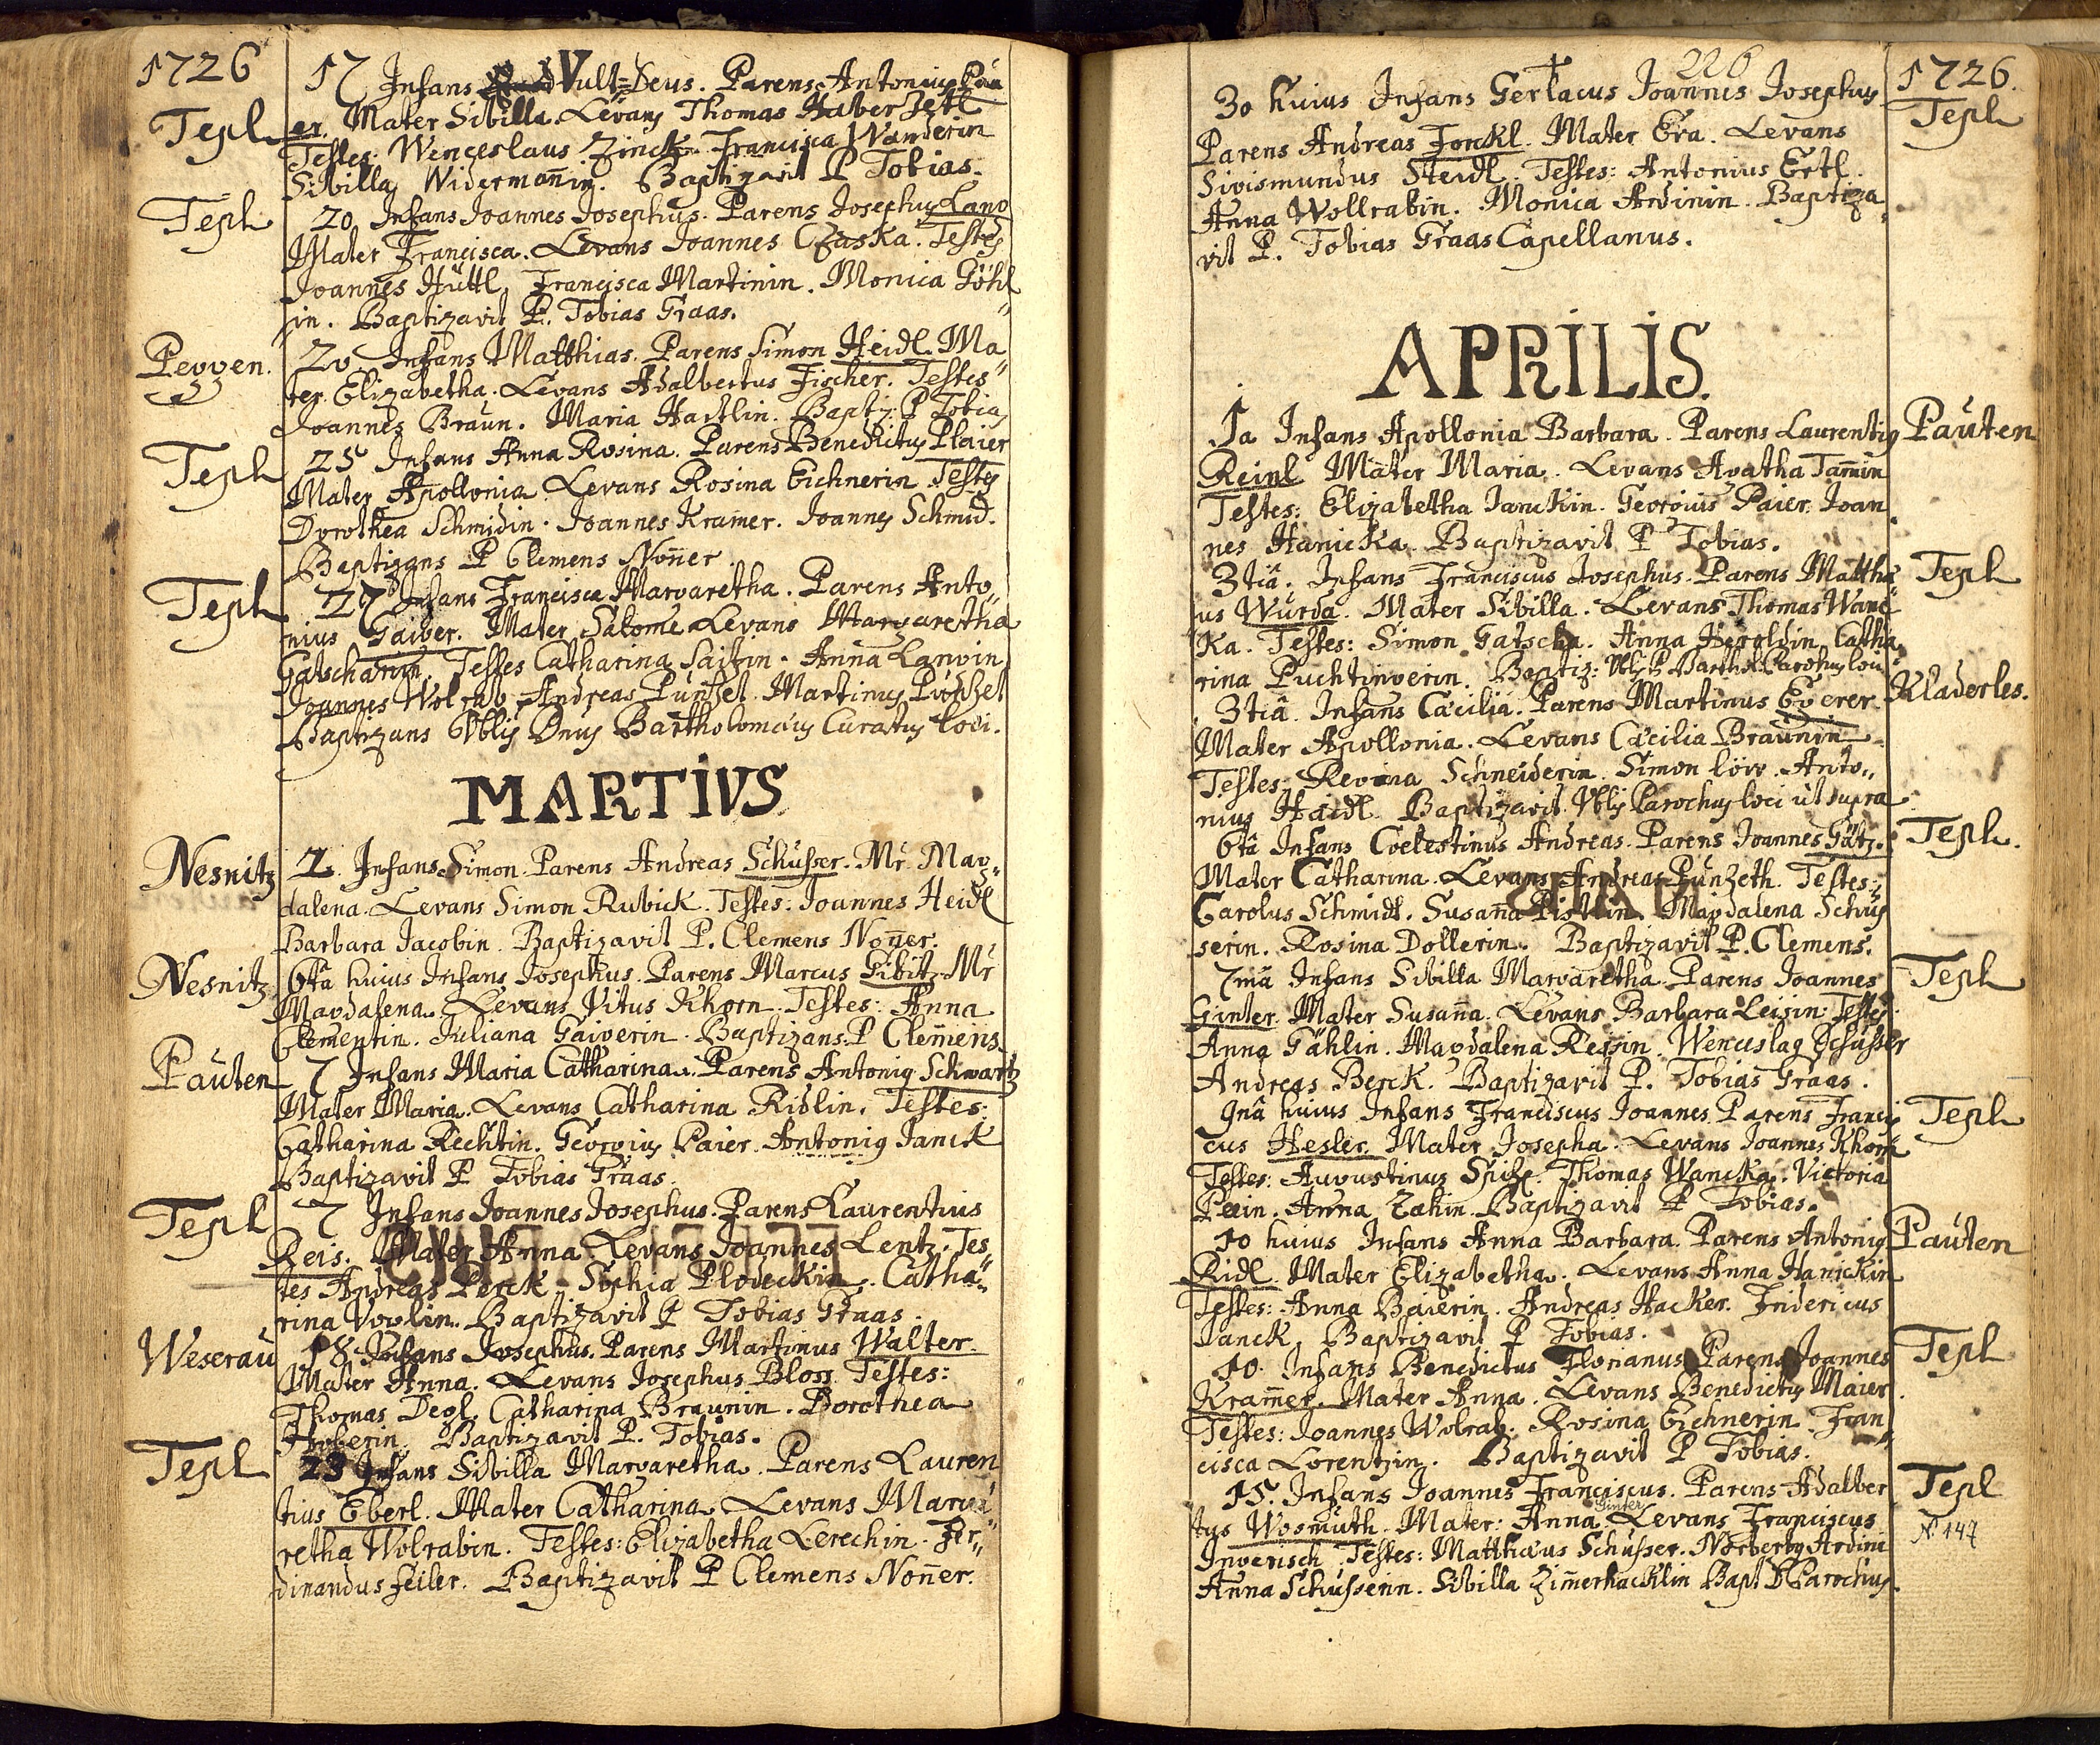 1726
17 Infans Vult=Deus. Parens Antonius Pau
Tepl
er. Mater Sibilla. Levans Thomas Haberzetl
Testes: Wenceslaus Zinck. Francisca Wanderin
Sibilla Widermanin. Baptizavit P Tobias.
Tepl
20 Infans Joannes Josephus. Parens Josephus Lang
Mater Francisca. Levans Joannes Czaska. Testes
Joannes Hüttl, Francisca Martinin. Monica Göhl
in. Baptizavit P. Tobias Graas.
Peggen.
20 Infans Matthias. Parens Simon Heidl. Ma
ter Elizabetha. Levans Adalbertus Fischer. Testes
Joannes Braun. Maria Hartlin. Baptiz: P Tobias
Tepl
25 Infans Anna Rosina. Parens Benedictus Plaier
Mater Apollonia. Levans Rosina Eichnerin Testes
Dorothea Schmidin. Joannes Kramer. Joannes Schmid.
Baptizans P Clemens Noñer.
Tepl
27 Infans Francisca Margaretha. Parens Anto
nius Gaiger. Mater Salome Levans Margaretha
Gatscharin. Testes Catharina Saitzin. Anna Langin
Joannes Wolrab. Andreas Punhel. Martinus Punhel
Baptizans Dnus Bartholomæus Curatus loci.
MARTIVS
Nesnitz
2. Infans Simon. Parens Andreas Schusser. Mr. Mag
dalena. Levans Simon Rubick. Testes: Joannes Heidl
Barbara Jacobin. Baptizavit P. Clemens Noñer.
Nesnitz
6tâ huius Infans Josephus. Parens Marcus Sibitz. Mr
Magdalena. Levans Vitus Khorn. Testes: Anna
Clementin. Juliana Gaigerin. Baptizans P Clemens.
Pauten
7 Infans Maria Catharina. Parens Antonig Schwartz
Mater Maria. Levans Catharina Ridlin. Testes:
Catharina Rechtin. Georgius Paier. Antonig Janck
Baptizavit P Tobias Graas.
Tepl
7 Infans Joannes Josephus. Parens Laurentius
Reis. Mater Anna. Levans Joannes Lentz. Tes
tes Andreas Perck. Sophia Plodeckin. Catha
rina Voglin. Baptizavit P Tobias Graas.
Weserau
18 Infans Josephus. Parens Martinus Walter.
Mater Anna. Levans Josephus Bloss. Testes:
Thomas Degl. Catharina Braunin. Dorothea
Huberin. Baptizavit P. Tobias.
Tepl
23 Infans Sibilla Margaretha. Parens Lauren
tius Eberl. Mater Catharina. Levans Marga
retha Wolrabin. Testes: Elizabetha Lerechin. Fer
dinandus Seiler. Baptizavit P Clemens Noñer.
226
1726.
30 huius Infans Gerlacus Joannes Josephus
Tepl
Parens Andreas Forckl. Mater Eva. Levans
Sigismundus Steidl. Testes: Antonius Ertl.
Anna Wollrabin. Monica Ardinin. Baptiza
vit P. Tobias Graas Capellanus.
APRILIS.
1a Infans Apollonia Barbara. Parens Laurentig
Pauten
Reinl Mater Maria. Levans Agatha Tañin
Testes: Elizabetha Janckin. Georgius Paier. Joan
nes Hanicka. Baptizavit P Tobias.
3tiâ. Infans Franciscus Josephus. Parens Matthæ
Tepl
us Wurda. Mater Sibilla. Levans Thomas Wane
ka. Testes: Simon Gatscha. Anna Heroldin. Catha
rina Puchtingerin. Baptiz: Parochus loci
Kladerles.
3tiâ. Infans Cæcilia. Parens Martinus Egerer.
Mater Apollonia. Levans Cæcilia Braunin
Testes: Regina Schneiderin. Simon löw. Anto
nius Haidl. Baptizavit Parochus loci ut supra
Tepl.
6tâ Infans Coelestinus Andreas. Parens Joannes Götz.
Mater Catharina. Levans Andreas Punheth. Testes:
Carolus Schmidt. Susaña Pistlin. Magdalena Schus
serin. Rosina Dollerin. Baptizavit P. Clemens.
Tepl
7mâ Infans Sibilla Margaretha. Parens Joannes
Ginter. Mater Susaña. Levans Barbara Leisin. Testes
Anna Gahlin. Magdalena Reisin. Wenceslag Schusser
Andreas Berck. Baptizavit P. Tobias Graas.
Tepl
9nâ huius Infans Franciscus Joannes. Parens Francis
cus Hesler. Mater Josepha. Levans Joannes Khorn
Testes: Augustinus Spitz. Thomas Wancka. Victoria
Plein. Anna Zahin. Baptizavit P Tobias.
Pauten
10 huius Infans Anna Barbara. Parens Antonig
Ridl. Mater Elizabetha. Levans Anna Hanickin
Testes: Anna Baierin. Andreas Hacker. Fridericus
Janck. Baptizavit P Tobias.
Tepl
10. Infans Benedictus Florianus Parens Joannes
Kramer. Mater Anna. Levans Benedictus Maier
Testes: Joannes Wolrab. Rosina Eichnerin. Fran
cisca Lorentzin. Baptizavit P Tobias.
Tepl
15. Infans Joannes Franciscus. Parens Adalber
Ginter
tus Wosmuth. Mater: Anna. Levans Franciscus
N 147
Ingerisch. Testes: Matthæus Schusser. Norbertg Ardini
Anna Schusserin. Sibilla Zimerhacklin Bapt D Parochus